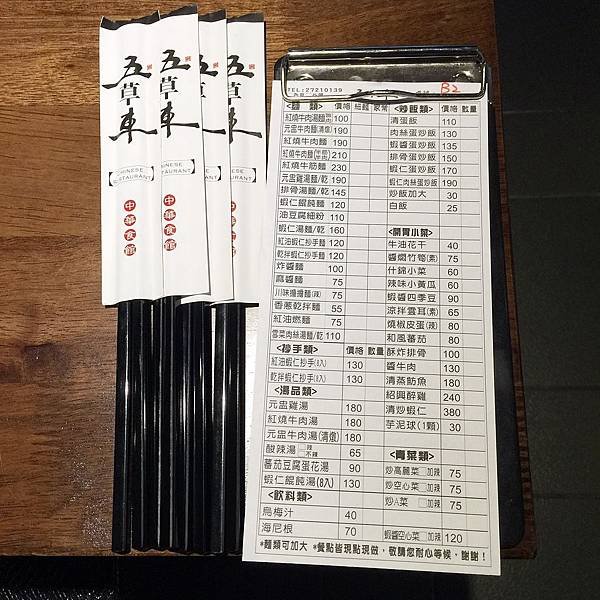 五草車
CHINESE RESTAURANT
中華食館
五草車
CHINESE RESTAURANT
中華食館
五草車
五草車
CHINESE RESTAURANT
中華食館
TEL:27210139
B2
<麵 類> 價格 細麵 家常
紅燒牛肉湯麵 100
元盅牛肉麵(清燉) 190
紅燒牛肉麵 190
紅燒牛肉麵 210
紅燒牛筋麵 230
元盅雞湯麵/乾 190
排骨湯麵/乾 145
蝦仁餛飩麵 120
油豆腐細粉 110
蝦仁湯麵/乾 160
紅油蝦仁抄手麵 120
乾拌蝦仁抄手麵 120
炸醬麵 100
麻醬麵 75
川味擔擔麵(辣) 75
香蔥乾拌麵 55
紅油燃麵 75
雪菜肉絲湯麵/乾 110
<抄手類> 價格 數量
紅油蝦仁抄手(8入) 130
乾拌蝦仁抄手(8入) 130
<湯品類>
元盅雞湯 180
紅燒牛肉湯 180
元盅牛肉湯(清燉) 180
酸辣湯 □辣 □不辣 65
蕃茄豆腐蛋花湯 90
蝦仁餛飩湯(8入) 130
<飲料類>
烏梅汁 40
海尼根 70
<炒飯類> 價格 數量
清蛋飯 110
肉絲蛋炒飯 130
蝦醬蛋炒飯 135
排骨蛋炒飯 150
蝦仁蛋炒飯 170
蝦仁肉絲蛋炒飯 190
炒飯加大 30
白飯 25
<開胃小菜>
牛油花干 40
醬燜竹筍(素) 75
什錦小菜 60
辣味小黃瓜 60
蝦醬四季豆 90
涼拌雲耳(素) 65
燒椒皮蛋(辣) 80
和風蕃茄 80
酥炸排骨 100
醬牛肉 130
清蒸魴魚 180
紹興醉雞 240
清炒蝦仁 380
芋泥球(1顆) 30
<青菜類>
炒高麗菜 □加辣 75
炒空心菜 □加辣 75
炒A菜 □加辣 75
蝦醬空心菜 □加辣 120
*麵類可加大 *餐點皆現點現做，敬請您耐心等候，謝謝！